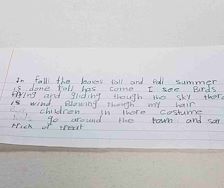 In fall the leaves fall and fall summer
is done fall has come I see Birds
flying and gliding though the sky there
is wind Blowing though my hair
children in there costume
go around the town and say
trick or treat